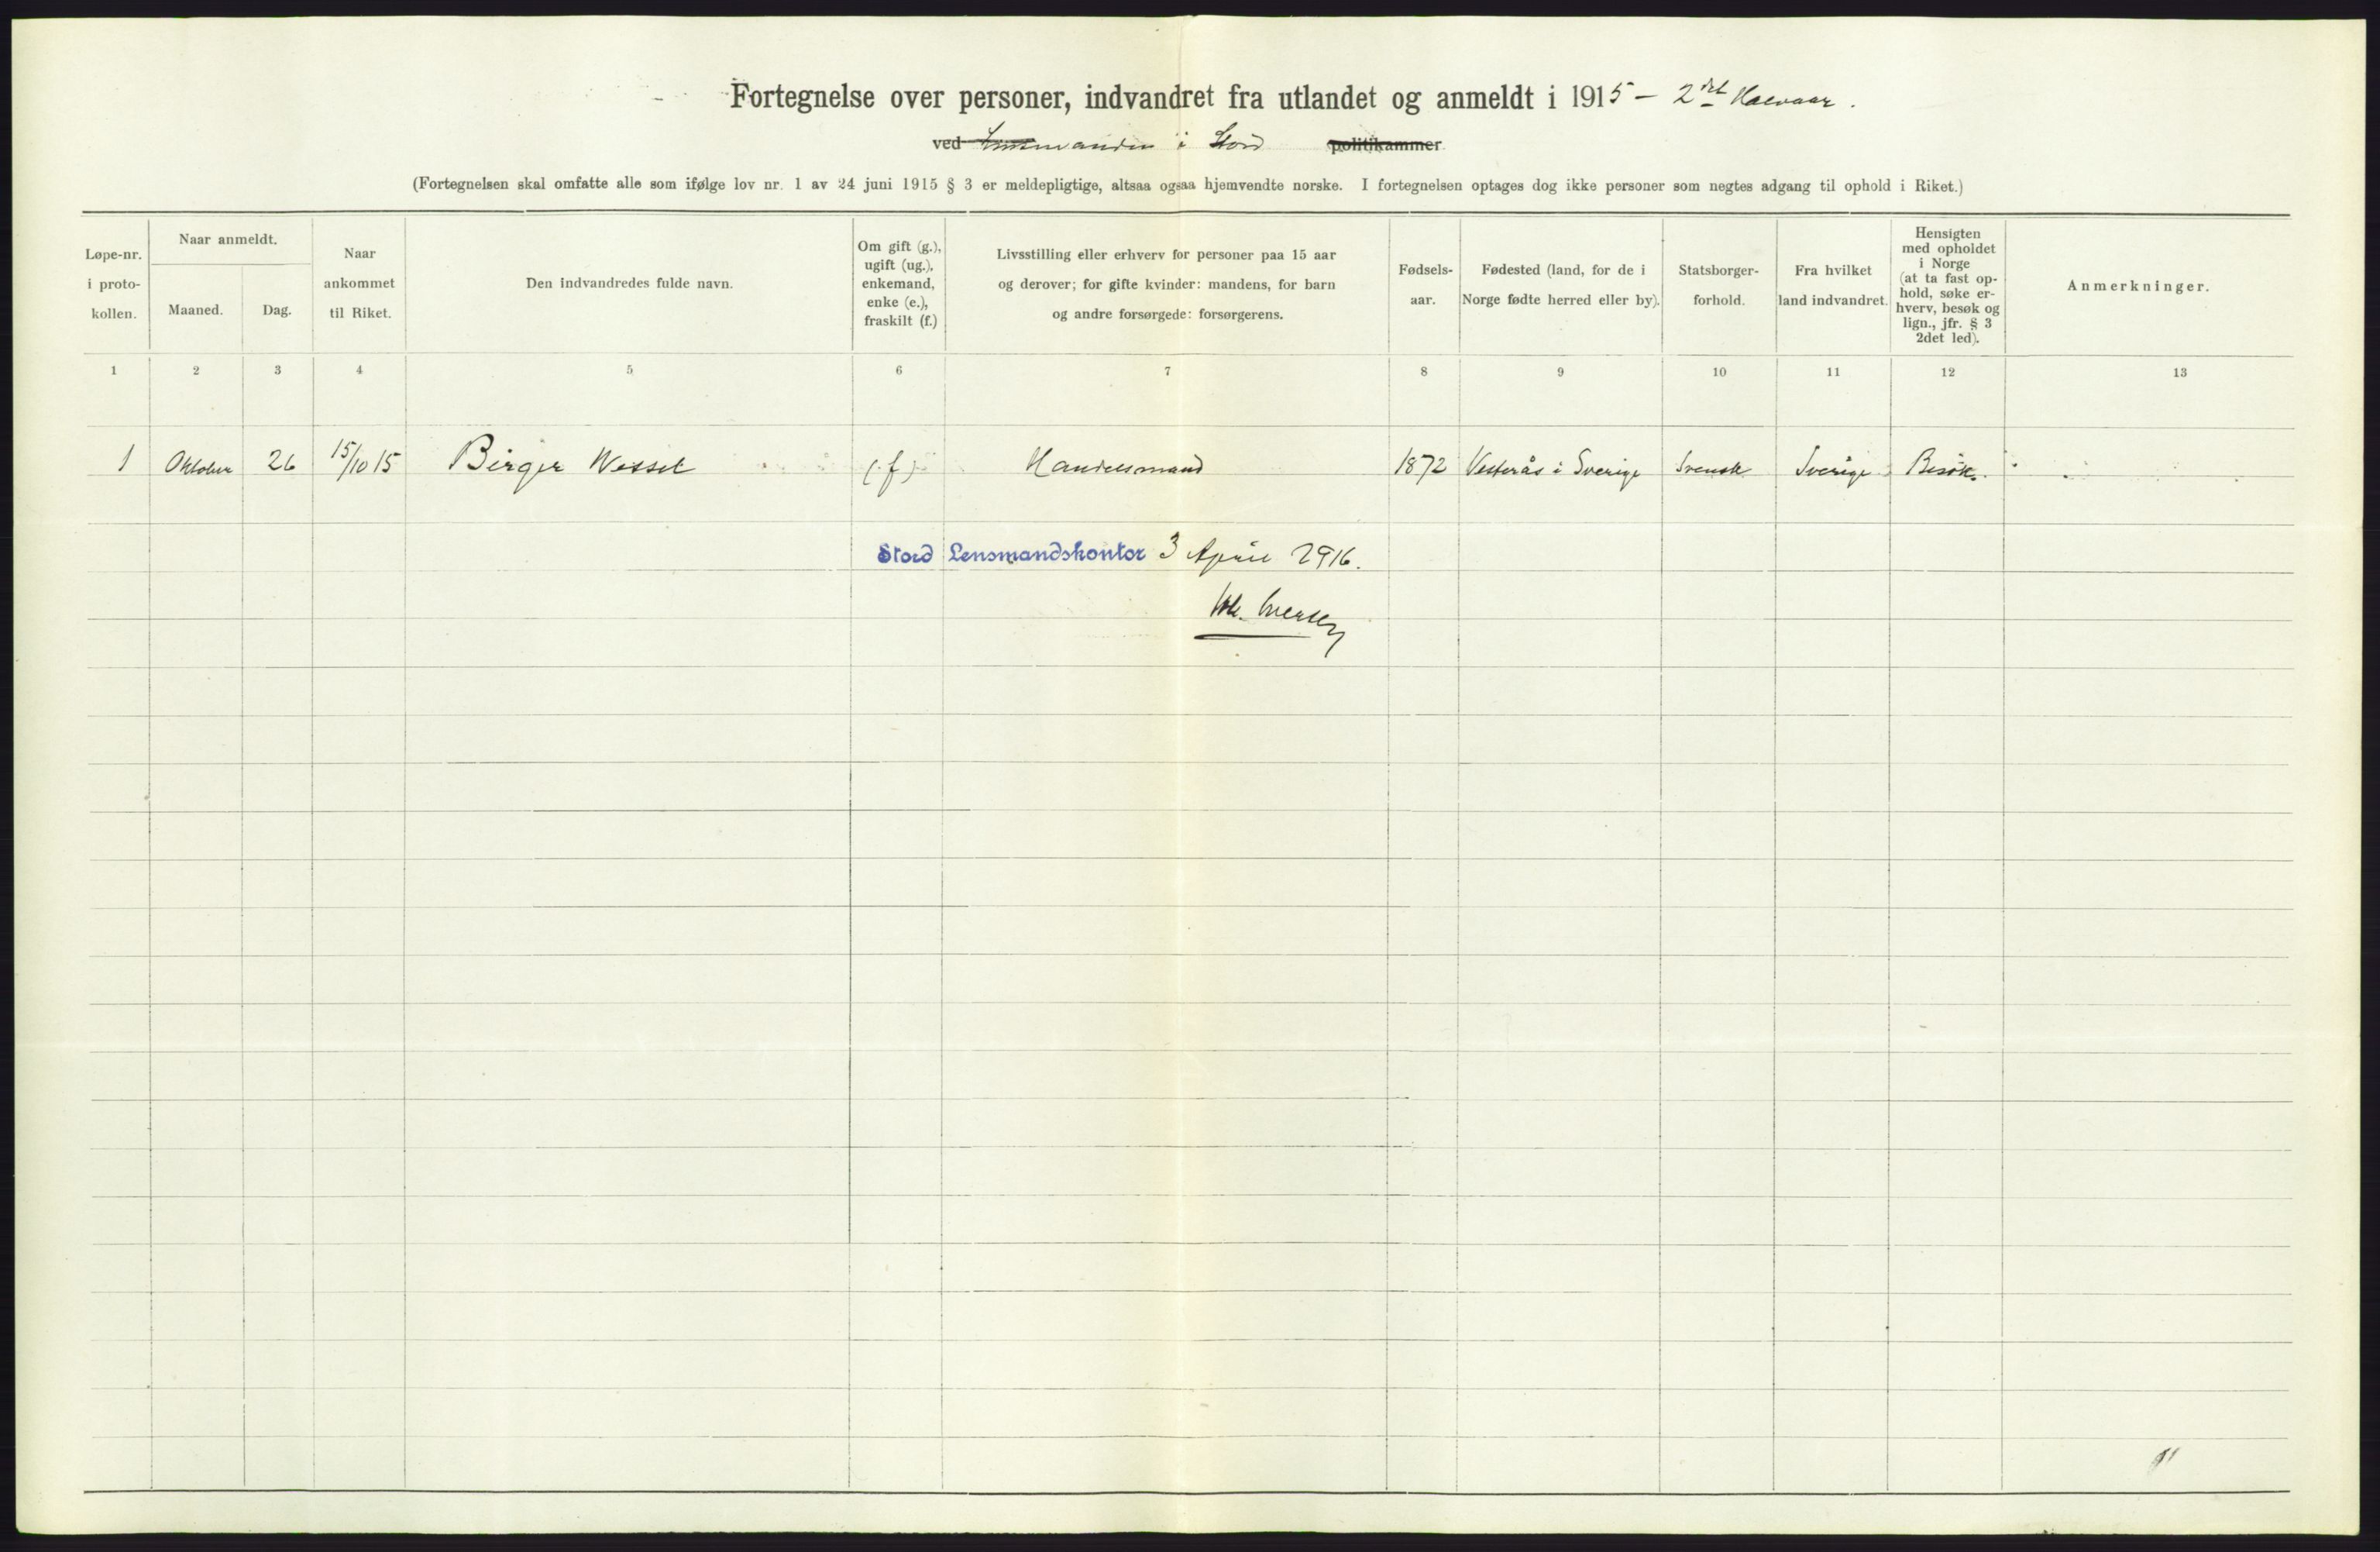 Fortegnelse over personer, indvandret fra utlandet og anmeldt i 1915 – 2det Halvaar.
ved Lensmanden i Stord politikammer.
(Fortegnelsen skal omfatte alle som ifølge lov nr. 1 av 24 juni 1915 § 3 er meldepligtige, altsaa ogsaa hjemvendte norske. I fortegnelsen optages dog ikke personer som negtes adgang til ophold i Riket.)
Løpe-nr.
i proto-
kollen.
Naar anmeldt.
Maaned.
Dag.
Naar
ankommet
til Riket.
Den indvandredes fulde navn.
Om gift (g.),
ugift (ug.),
enkemand,
enke (e.),
fraskilt (f.)
Livsstilling eller erhverv for personer paa 15 aar
og derover; for gifte kvinder: mandens, for barn
og andre forsørgede: forsørgerens.
Fødsels-
aar.
Fødested (land, for de i
Norge fødte herred eller by).
Statsborger-
forhold.
Fra hvilket
land indvandret.
Hensigten
med opholdet
i Norge
(at ta fast op-
hold, søke er-
hverv, besøk og
lign., jfr. § 3
2det led).
Anmerkninger.
1 2 3 4 5 6 7 8 9 10 11 12 13
1 Oktober 26 15/10 15 Birger Wessel (f) Handelsmand 1872 Vesterås i Sverige Svensk Sverige Besøk.
Stord Lensmandskontor 3 April 1916.